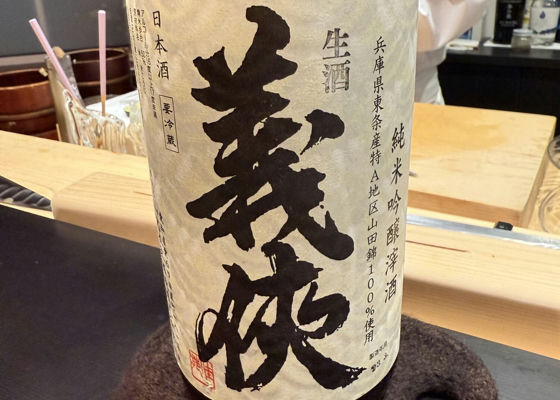 純米吟醸滓酒
兵庫県東条産特A地区山田錦100%使用
生酒
義侠
日本酒
要冷蔵